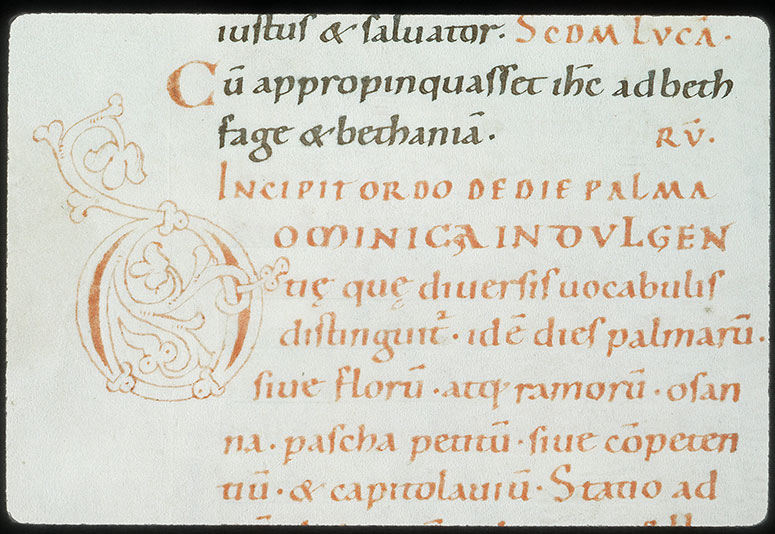 iustus & saluator. SCDM LVCA.
Cū appropinquasset ihc̄ ad beth
fage & bethaniā.
INCIPIT ORDO DE DIE PALMA RV̄.
DOMINICA INDVLGEN
tię quę diuersis uocabulis
distinguit᷑. idē dies palmarū.
siue florū. atq; ramorū. osan
na. pascha petitū. siue cōpeten
tiū. & capitolauiū. Statio ad